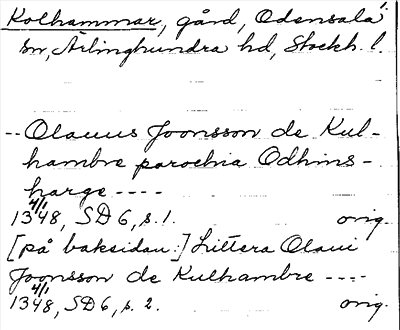 Kolhammar, gård, Odensala
sn, Ärlinghundra hd, Stockh. l.
-- Olauus Joonsson de Kul-
hambre parochia Odhins-
harge ----
4/1
1348, SD 6, s. 1. orig.
[på baksidan:] Littera Olaui
Joonsson de Kulhambre ----
4/1
1348, SD 6, s. 2. orig.